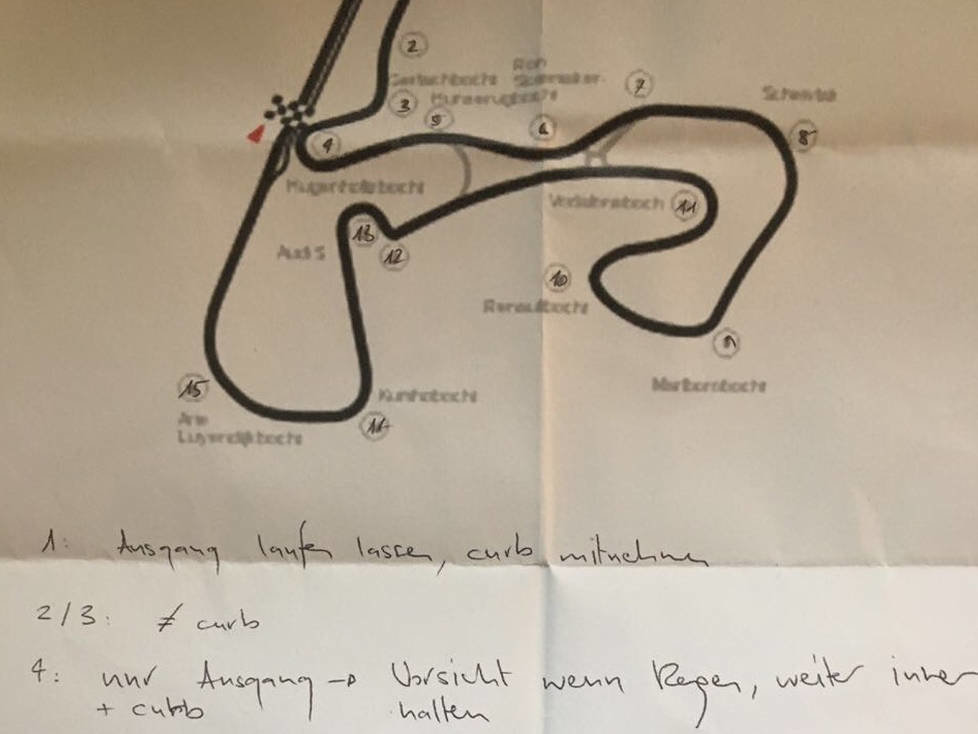 2
Gerlachbocht
Rob
Slotemaker-
7
Scheivlak
3
Hunserugbocht
5
6
8
4
Hugenholtzbocht
Vodafonebocht
11
13
Audi S
12
10
Renaultbocht
9
15
Kumhobocht
Marlborobocht
Arie
Luyendijkbocht
14
1: Ausgang laufen lassen, curb mitnehmen
2/3: ≠ curb
4: nur Ausgang → Vorsicht wenn Regen, weiter innen
+ curb halten